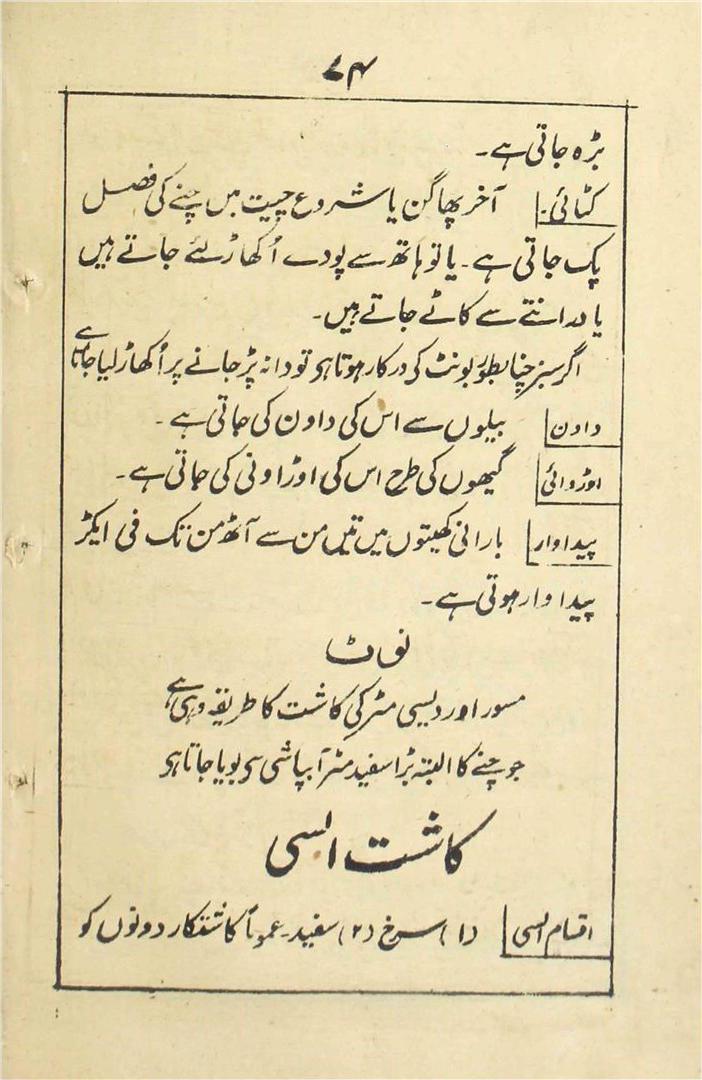 ۷۴
بڑہ جاتی ہے۔
کٹائی۔ آخر پھاگن یا شروع چیت میں چنے کی فصل
پک جاتی ہے۔ یا تو ہاتھ سے پودے اُکھاڑ لئے جاتے ہیں
یا درانتے سے کاٹے جاتے ہیں۔
اگر سبز چنا بطور بونٹ کی درکار ہوتا ہو تو دانہ پڑ جانے پر اُکھاڑ لیا جاتا ہے
داون بیلوں سے اس کی داون کی جاتی ہے۔
اوڑوائی گیھوں کی طرح اس کی اوڑاونی کی جاتی ہے۔
پیداوار بارانی کھیتوں میں تین من سے آٹھ من تک فی ایکڑ
پیداوار ہوتی ہے۔
نوٹ
مسور اور دیسی مٹر کی کاشت کا طریقہ وہی ہے
جو چنے کا البتہ بڑا سفید مٹر آبپاشی سی بویا جاتا ہو
کاشت السی
اقسام السی (۱) سرخ (۲) سفید۔ عموماً کاشتکار دونوں کو